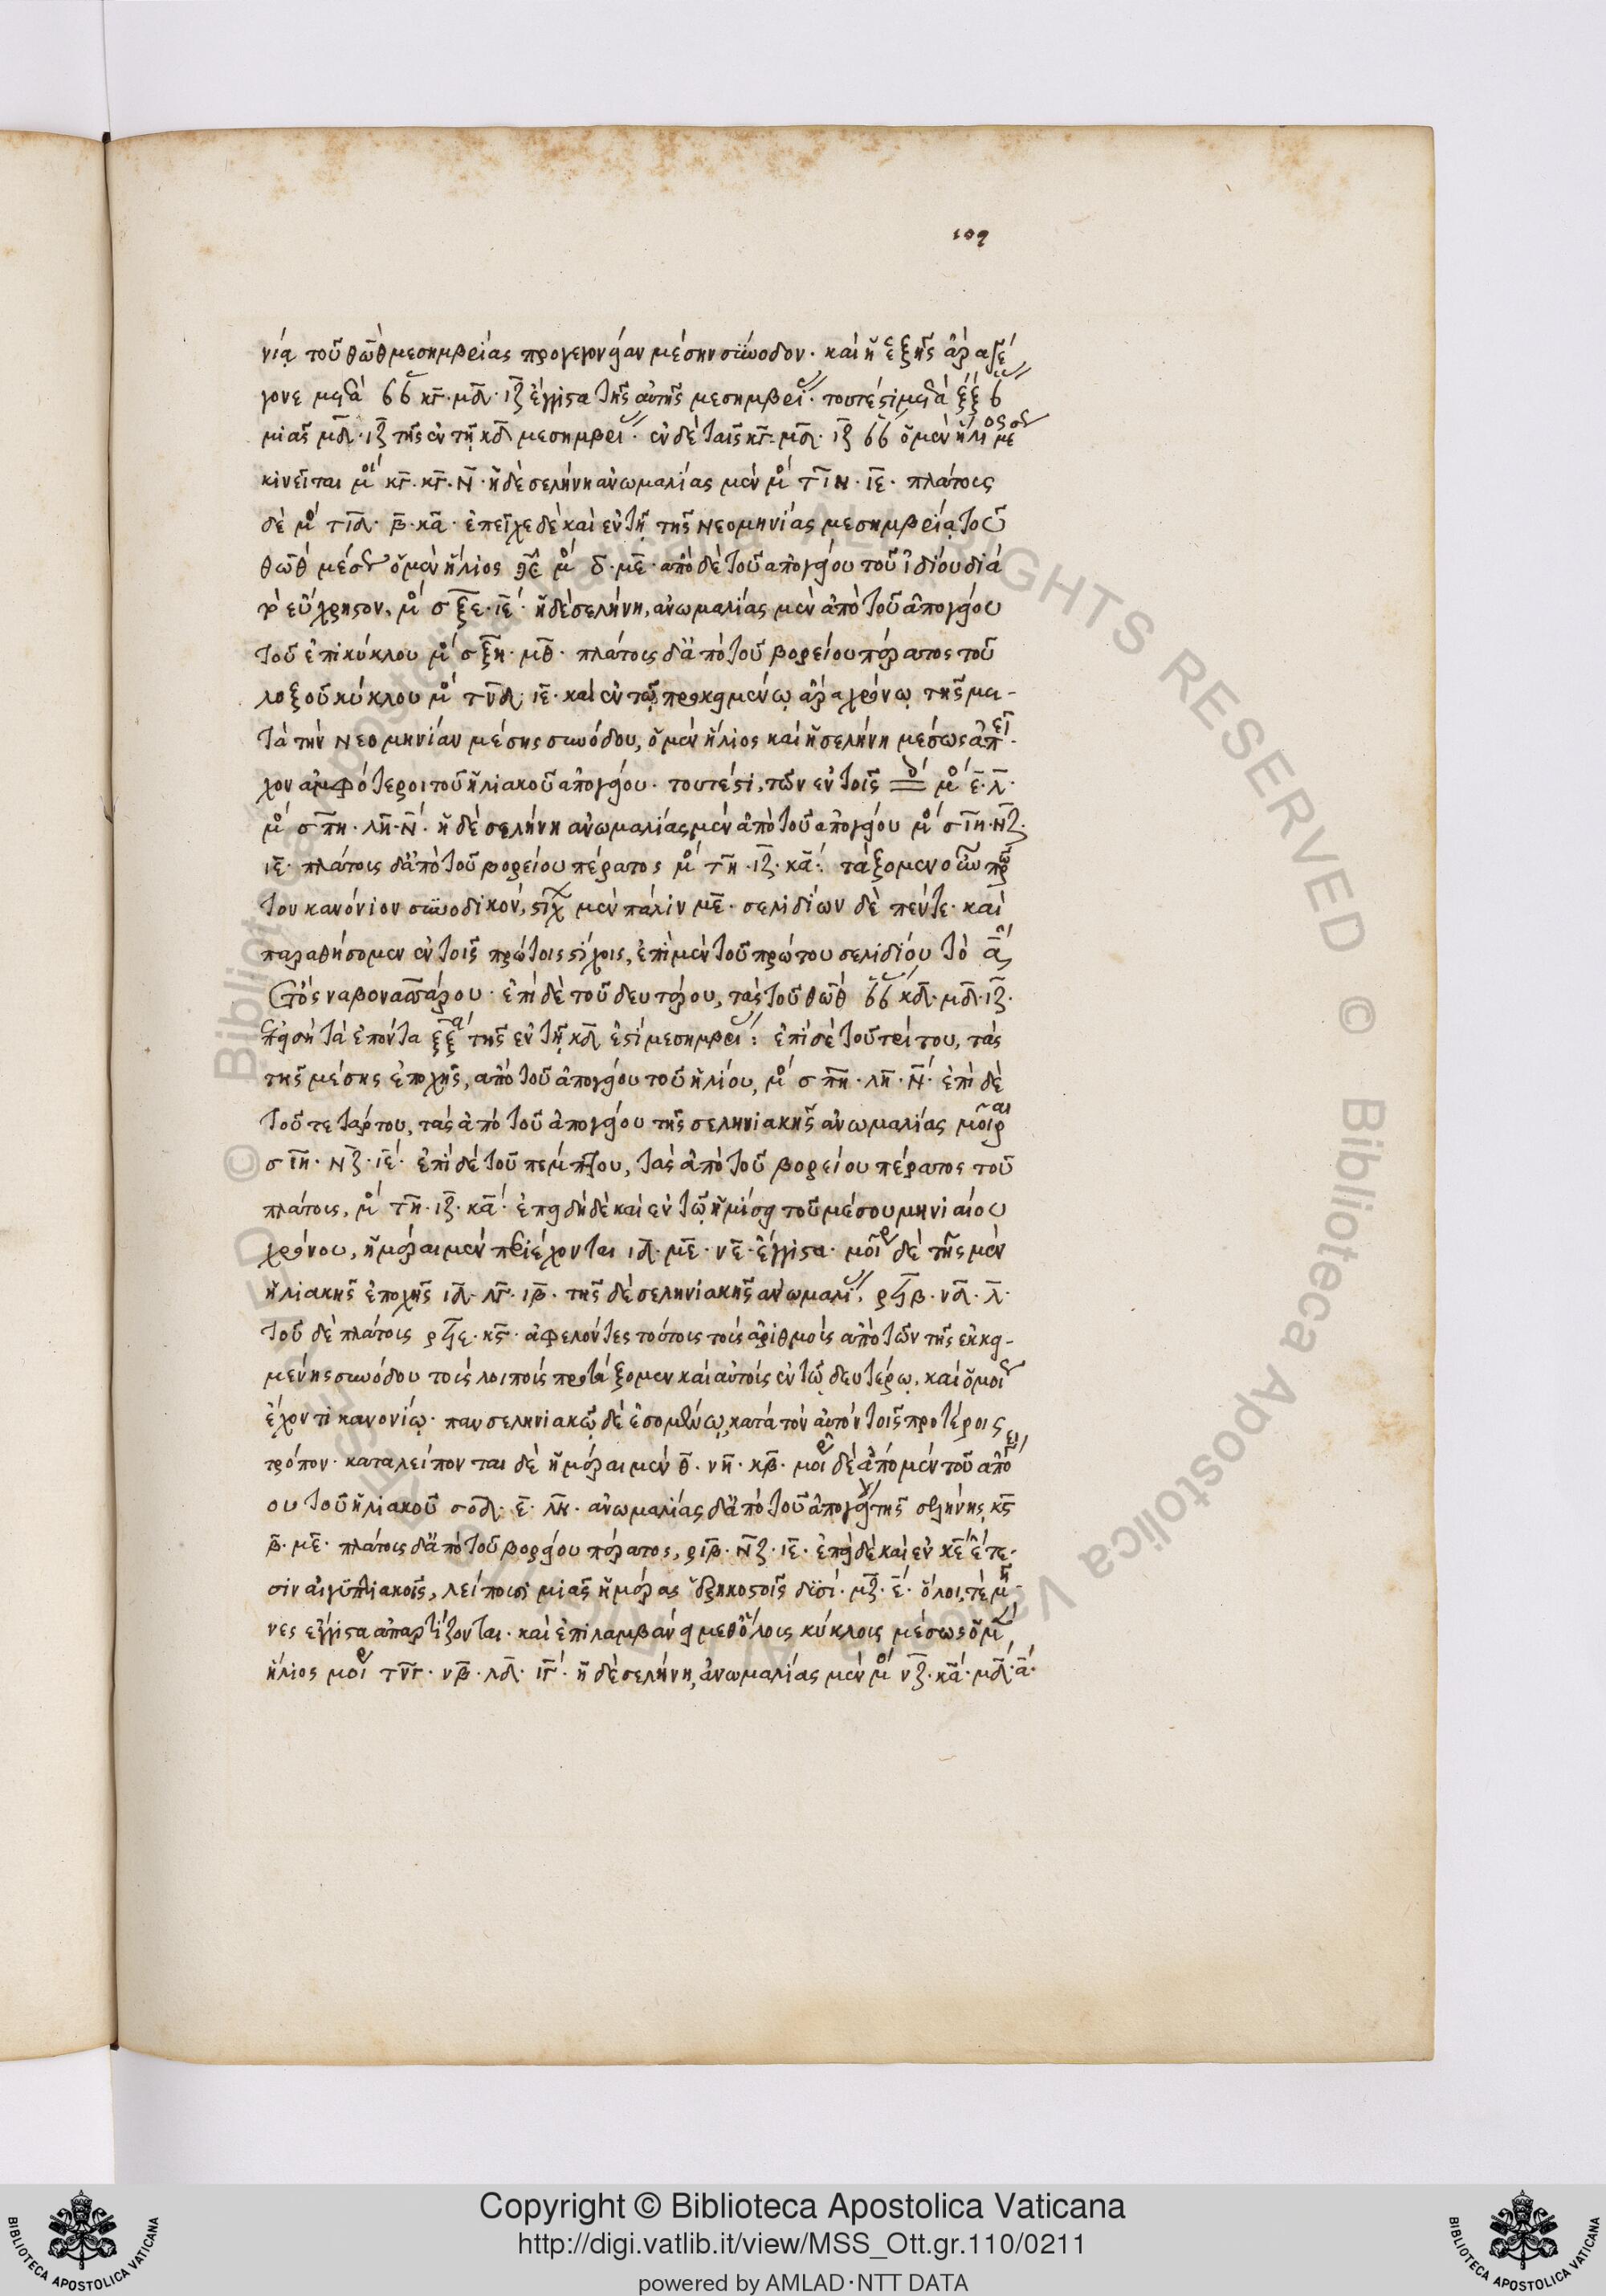 109
νίᾳ τοῦ θὼθ μεσημβρίας προγεγονυῖαν μέσην σύνοδον. καὶ ἡ ἑξῆς ἄρα γέ
γονε μετὰ κγ. μδ. ιζ ἔγγιστα τῆς αὐτῆς μεσημβρί. τουτέστι μετὰ ξξ
μιᾶς μδ. ιζ τῆς ἐν τῇ κδ μεσημβρί. ἐν δὲ ταῖς κγ. μδ. ιζ ὁ μὲν ἥλιος μέ
κινεῖται μο κγ. κγ. ν. ἡ δὲ σελήνη ἀνωμαλίας μὲν μο τιη. ιε. πλάτους
δὲ μο τιδ. β. κα. ἐπεῖχε δὲ καὶ ἐν τῇ τῆς νεομηνίας μεσημβρίᾳ τοῦ
θὼθ μέσως ὁ μὲν ἥλιος μο δ. με. ἀπὸ δὲ τοῦ ἀπογείου τοῦ ἰδίου διὰ
τὸ εὔχρηστον, μο σξε. ιε. ἡ δὲ σελήνη, ἀνωμαλίας μὲν ἀπὸ τοῦ ἀπογείου
τοῦ ἐπικύκλου μο σξη. μθ. πλάτους δ' ἀπὸ τοῦ βορείου πέρατος τοῦ
λοξοῦ κύκλου μο τνδ. ιε. καὶ ἐν τῷ προκειμένῳ ἄρα χρόνῳ τῆς με-
τὰ τὴν νεομηνίαν μέσης συνόδου, ὁ μὲν ἥλιος καὶ ἡ σελήνη μέσως ἀπεῖ-
χον ἀμφότεροι τοῦ ἡλιακοῦ ἀπογείου. τουτέστι, τῶν ἐν τοῖς μο ε. λ.
μο σπη. λη. ν. ἡ δὲ σελήνη ἀνωμαλίας μὲν ἀπὸ τοῦ ἀπογείου μο σιη. νζ.
ιε. πλάτους δ' ἀπὸ τοῦ βορείου πέρατος μο τη. ιζ. κα. τάξομεν οὖν πρῶ
τον κανόνιον συνοδικόν, στίχ μὲν πάλιν με. σελιδίων δὲ πέντε. καὶ
παραθήσομεν ἐν τοῖς πρώτοις στίχοις, ἐπὶ μὲν τοῦ πρώτου σελιδίου τὸ α
ἔτος ναβονασσάρου. ἐπὶ δὲ τοῦ δευτέρου, τὰς τοῦ θὼθ κδ. μδ. ιζ.
ἐπειδὴ τὰ ἐπόντα ξξα τῆς ἐν τῇ κδ ἐστὶ μεσημβρί: ἐπὶ δὲ τοῦ τρίτου, τὰς
τῆς μέσης ἐποχῆς, ἀπὸ τοῦ ἀπογείου τοῦ ἡλίου, μο σπη. λη. ν. ἐπὶ δὲ
τοῦ τετάρτου, τὰς ἀπὸ τοῦ ἀπογείου τῆς σεληνιακῆς ἀνωμαλίας μοίρας
σιη. νζ. ιε. ἐπὶ δὲ τοῦ πέμπτου, τὰς ἀπὸ τοῦ βορείου πέρατος τοῦ
πλάτους, μο τη. ιζ. κα. ἐπειδὴ δὲ καὶ ἐν τῷ ἡμίσει τοῦ μέσου μηνιαίου
χρόνου, ἡμέραι μὲν περιέχονται ιδ. με. νε. ἔγγιστα. μοῖρ δὲ τῆς μὲν
ἡλιακῆς ἐποχῆς ιδ. λγ. ιβ. τῆς δὲ σεληνιακῆς ἀνωμαλί. ρϟβ. νδ. λ.
τοῦ δὲ πλάτους ρϟε. κς. ἀφελόντες τούτους τοὺς ἀριθμοὺς ἀπὸ τῶν τῆς ἐκκει-
μένης συνόδου τοὺς λοιποὺς προτάξομεν καὶ αὐτοὺς ἐν τῷ δευτέρῳ. καὶ ὁμοίως
ἔχοντι κανονίῳ. πανσεληνιακῷ δὲ ἐσομένῳ, κατὰ τὸν αὐτὸν τοῖς προτέροις
τρόπον. καταλείπονται δὲ ἡμέραι μὲν θ. νη. κβ. μοῖ δὲ ἀπὸ μὲν τοῦ ἀπογεί
ου τοῦ ἡλιακοῦ σοδ. ε. λη. ἀνωμαλίας δ' ἀπὸ τοῦ ἀπογεί τῆς σελήνης, κς
β. με. πλάτους δ' ἀπὸ τοῦ βορείου πέρατος, ριβ. νζ. ιε. ἐπεὶ δὲ καὶ ἐν κε ἔτε-
σιν αἰγυπτιακοῖς, λείπουσι μιᾶς ἡμέρας ἑξηκοστοῖς δυσί. μζ. ε. ὅλοι, τὲ μῆ-
νες ἔγγιστα ἀπαρτίζονται. καὶ ἐπιλαμβάνει μεθ' ὅλους κύκλους μέσως ὁ μὲν
ἥλιος μοῖ τνγ. νβ. λδ. ιγ. ἡ δὲ σελήνη, ἀνωμαλίας μὲν μο νζ. κα. μδ. α.
Copyright © Biblioteca Apostolica Vaticana
http://digi.vatlib.it/view/MSS_Ott.gr.110/0211
powered by AMLAD·NTT DATA
BIBLIOTECA APOSTOLICA VATICANA
BIBLIOTECA APOSTOLICA VATICANA